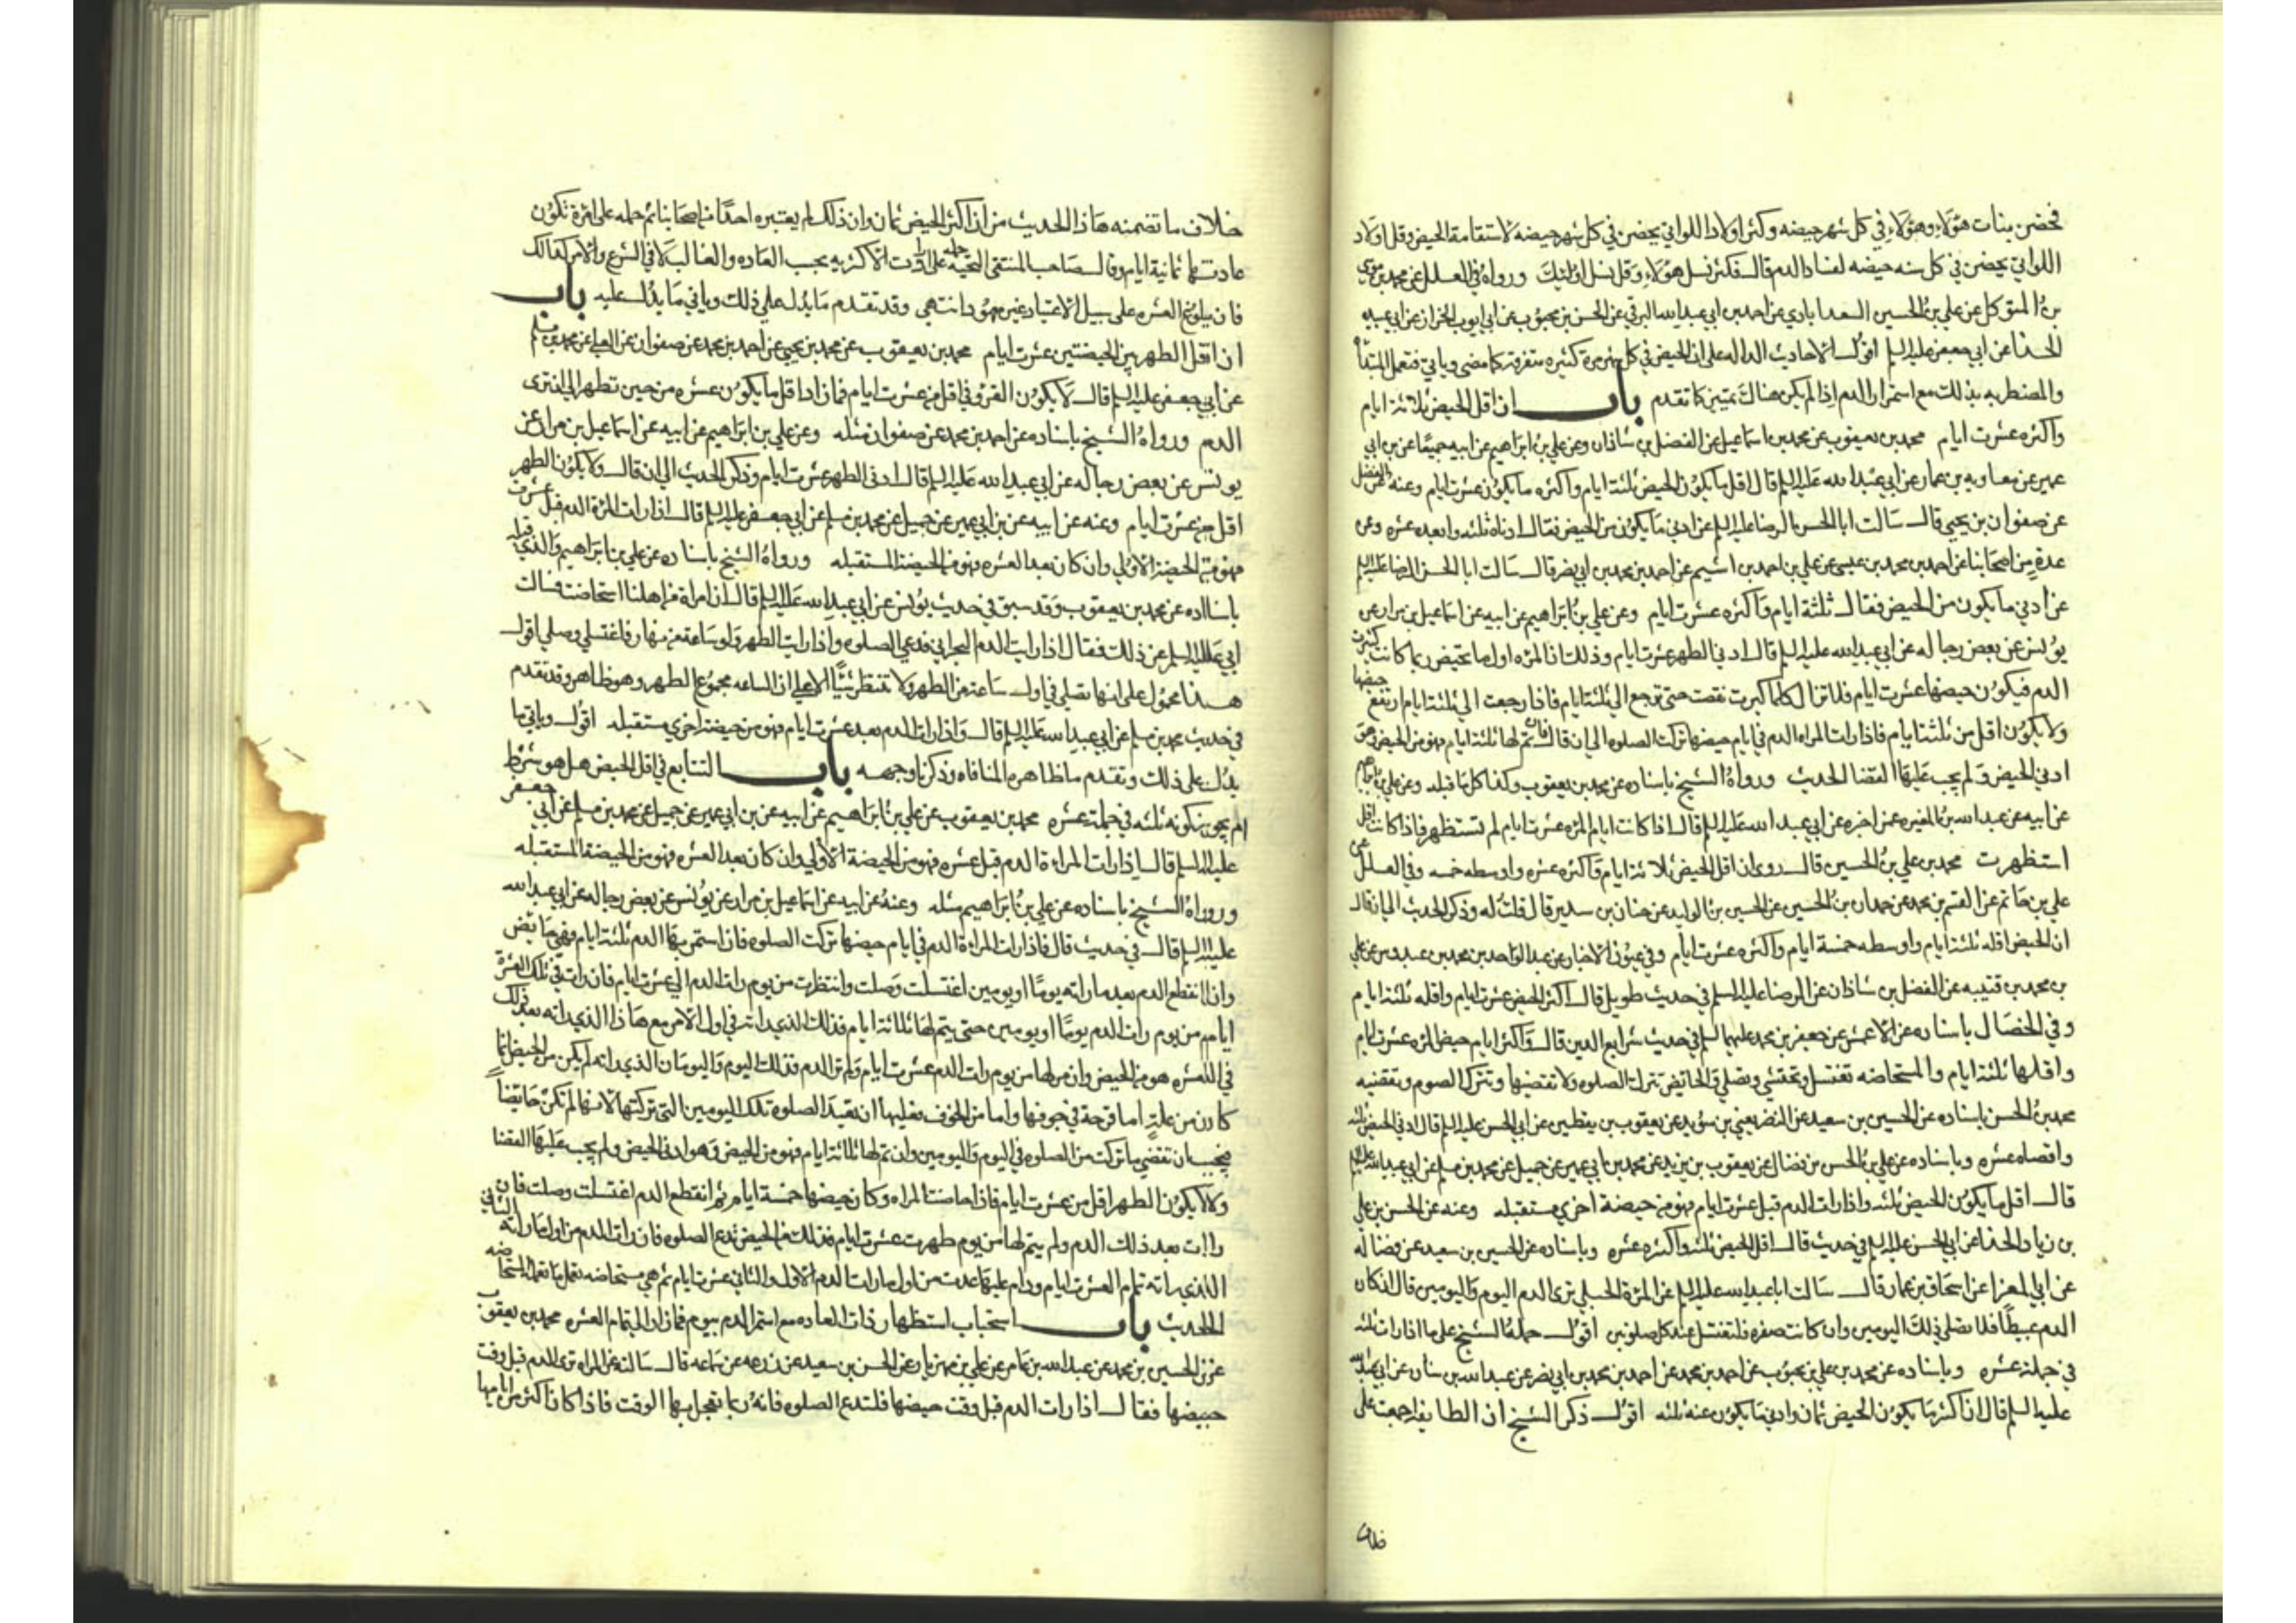 فحضن بنات هؤلاء وهؤلاء في كل شهر حيضه وكثر اولاد اللواتي يحضن في كل شهر حيضه لاستقامة الحيض وقل اولاد
اللواتي يحضن في كل سنه حيضه لفساد الدم قال فكثر نسل هؤلاء وقل نسل اولئك ورواه في العلل عن محمد بن موسى
بن المتوكل عن علي بن الحسين السعدابادي عن احمد بن ابي عبدالله البرقي عن الحسن بن محبوب عن ابي ايوب الخراز عن ابي عبيده
الحذا عن ابي جعفر عليه السلم اقول الاحاديث الداله على ان الحيض في كل شهر مرة كثيره متفرقة كما مضى وياتي فتعمل المبتداة
والمضطربه بذلك مع استمرار الدم اذا لم يكن هناك تمييز كما تقدم باب ان اقل الحيض ثلاثة ايام
واكثره عشرت ايام محمد بن يعقوب عن محمد بن اسماعيل عن الفضل بن شاذان وعن علي بن ابراهيم عن ابيه جميعا عن بن ابي
عمير عن معاويه بن عمار عن ابي عبدالله عليه السلم قال اقل ما يكون الحيض ثلثة ايام واكثره ما يكون عشرت ايام وعنه عن الفضل
عن صفوان بن يحيى قال سالت ابا الحسن الرضا عليه السلم عن ادني ما يكون من الحيض فقال ادناه ثلثه وابعده عشره وعن
عدة من اصحابنا عن احمد بن محمد بن عيسى عن علي بن احمد بن اشيم عن احمد بن محمد بن ابي نضر قال سالت ابا الحسن الرضا عليه السلم
عن ادني ما يكون من الحيض فقال ثلثة ايام واكثره عشرت ايام وعن علي بن ابراهيم عن ابيه عن اسماعيل بن مرار عن
يونس عن بعض رجاله عن ابي عبدالله عليه السلم قال ادني الطهر عشرت ايام وذلك ان المره اول ما تحيض ربما كانت كثيرت
الدم فيكون حيضها عشرت ايام فلا تزال كلما كبرت نقصت حتى ترجع الي ثلثة ايام فاذا رجعت الي ثلثة ايام ارتفع حيضها
ولا يكون اقل من ثلثة ايام فاذا رات المراه الدم في ايام حيضها تركت الصلوه الي ان قال فان تم لها ثلثة ايام فهو من الحيض وهو
ادني الحيض ولم يجب عليها القضا الحديث ورواه الشيخ باسناده عن محمد بن يعقوب وكذا كل ما قبله وعن علي بن ابراهيم
عن ابيه عن عبدالله بن المغيره عمن اخبره عن ابي عبدالله عليه السلم قال اذا كانت ايام المره عشرت ايام لم تستظهر فاذا كانت اقل
استظهرت محمد بن علي بن الحسين قال روى ان اقل الحيض ثلاثة ايام واكثره عشره واوسطه خمسه وفي العلل عن
علي بن حاتم عن القسم بن محمد عن حمدان بن الحسين عن الحسين بن الوليد عن حنان بن سدير قال قلت له وذكر الحديث الي ان قال
ان الحيض اقله ثلثة ايام واوسطه خمسة ايام واكثره عشرت ايام وفي عيون الاخبار عن عبد الواحد بن محمد بن عبدوس عن علي
بن محمد بن قتيبه عن الفضل بن شاذان عن الرضا عليه السلم في حديث طويل قال اكثر الحيض عشرت ايام واقله ثلثة ايام
وفي الخصال باسناده عن الاعمش عن جعفر بن محمد عليهما السلم في حديث شرايع الدين قال واكثر ايام حيض المره عشرت ايام
واقلها ثلثة ايام والمستحاضه تغتسل وتحتشي وتصلي والحائض تترك الصلوه ولا تقضيها وتترك الصوم وتقضيه
محمد بن الحسن باسناده عن الحسين بن سعيد عن النضر يعني بن سويد عن يعقوب بن يقطين عن ابي الحسن عليه السلم قال ادني الحيض ثلثه
واقصاه عشره وباسناده عن علي بن الحسن بن فضال عن يعقوب بن يزيد عن محمد بن ابي عمير عن جميل عن محمد بن مسلم عن ابي عبدالله عليه السلم
قال اقل ما يكون الحيض ثلثه واذا رات الدم قبل عشرت ايام فهو من حيضة اخرى مستقبله وعنه عن الحسن بن علي
بن زياد الخذا عن ابي الحسن عليه السلم في حديث قال اقل الحيض ثلثه واكثره عشره وباسناده عن الحسين بن سعيد عن فضاله
عن ابي المعزا عن اسحاق بن عمار قال سالت اباعبدالله عليه السلم عن المرة الحبلي ترى الدم اليوم واليومين قال ان كان
الدم عبيطا فلا تصلي ذلك اليومين وان كانت صفره فلتغتسل عند كل صلوتين اقول حمله الشيخ على ما اذا رات ثلثه
في جملة عشره وباسناده عن محمد بن علي بن محبوب عن احمد بن محمد عن احمد بن محمد بن ابي نضر عن عبدالله بن سنان عن ابي عبدالله
عليه السلم قال ان اكثر ما يكون الحيض ثمان وادني ما يكون عنه ثلثه اقول ذكر الشيخ ان الطايفه اجمعت على
خلاف
خلاف ما تضمنه هاذا الحديث من ان اكثر الحيض ثمان وان ذلك لم يعتبره احدا من اصحابنا ثم حمله على امرة تكون
عادتها ثمانية ايام وقال صاحب المنتقى المتجه حمله على ارادت الاكثريه بحسب العاده والغالب لا في الشرع والامر كذالك
فان بلوغ العشره على سبيل الاعتياد غير معهود انتهى وقد تقدم ما يدل على ذلك وياتي ما يدل عليه باب
ان اقل الطهر بين الحيضتين عشرت ايام محمد بن يعقوب عن محمد بن يحيى عن احمد بن محمد عن صفوان عن العلا عن محمد بن مسلم
عن ابي جعفر عليه السلم قال لا يكون القرو في اقل من عشرت ايام فما زاد اقل ما يكون عشره من حين تطهر الي ان ترى
الدم ورواه الشيخ باسناده عن احمد بن محمد عن صفوان مثله وعن علي بن ابراهيم عن ابيه عن اسماعيل بن مرار عن
يونس عن بعض رجاله عن ابي عبدالله عليه السلم قال ادنى الطهر عشرت ايام وذكر الحديث الي ان قال ولا يكون الطهر
اقل من عشرت ايام وعنه عن ابيه عن بن ابي عمير عن جميل عن محمد بن مسلم عن ابي جعفر عليه السلم قال اذا رات المرة الدم قبل عشرت
فهو من الحيضة الاولي وان كان بعد العشره فهو من الحيضة المستقبله ورواه الشيخ باسناده عن علي بن ابراهيم والذي قبله
باسناده عن محمد بن يعقوب وقد سبق في حديث يونس عن ابي عبدالله عليه السلم قال ان امراة من اهلنا استحاضت فسالت
ابي عليه السلم عن ذلك فقال اذا رايت الدم البحراني فدعي الصلوه واذا رايت الطهر ولو ساعة من نهار فاغتسلي وصلي اقول
هذا محمول على انها تصلي في اول ساعة من الطهر ولا تنتظر شيئا لا على ان الساعه مجموع الطهر وهو ظاهر وقد تقدم
في حديث محمد بن مسلم عن ابي عبدالله عليه السلم قال واذا رات الدم بعد عشرت ايام فهو من حيضة اخري مستقبله اقول وياتي ما
يدل على ذلك وتقدم ما ظاهره المنافاه وذكرنا وجهه باب التتابع في اقل الحيض هل هو شرط
ام يجوز كونه ثلثه في جملة عشره محمد بن يعقوب عن علي بن ابراهيم عن ابيه عن بن ابي عمير عن جميل عن محمد بن مسلم عن ابي جعفر
عليه السلم قال اذا رات المراءة الدم قبل عشره فهو من الحيضة الاولي وان كان بعد العشره فهو من الحيضة المستقبله
ورواه الشيخ باسناده عن علي بن ابراهيم مثله وعنه عن ابيه عن اسماعيل بن مرار عن يونس عن بعض رجاله عن ابي عبدالله
عليه السلم قال في حديث قال فاذا رات المراءة الدم في ايام حيضها تركت الصلوه فان استمر بها الدم ثلثة ايام فهي حائض
وان انقطع الدم بعد ما راته يوما او يومين اغتسلت وصلت وانتظرت من يوم رات الدم الي عشرت ايام فان رات في تلك العشرة
ايام من يوم رات الدم يوما او يومين حتى يتم لها ثلاثة ايام فذلك الذي راته في اول الامر مع هاذا الذي راته بعد ذلك
في العشره هو من الحيض وان مر لها من يوم رات الدم عشرت ايام ولم تر الدم فذلك اليوم واليومان الذي راته لم يكن من الحيض انما
كان من علة اما قرحة في جوفها واما من الخوف فعليها ان تعيد الصلوه تلك اليومين التي تركتها لانها لم تكن حائضا
فيجب ان تقضي ما تركت من الصلوه في اليوم واليومين وان تم لها ثلاثة ايام فهو من الحيض وهو ادنى الحيض ولم يجب عليها القضا
ولا يكون الطهر اقل من عشرت ايام فاذا حاضت المراه وكان حيضها خمسة ايام ثم انقطع الدم اغتسلت وصلت فان
رات بعد ذلك الدم ولم يتم لها من يوم طهرت عشرت ايام فذلك من الحيض تدع الصلوه فان رات الدم من اول ما راته الثاني
الذي راته تمام العشرت ايام ودام عليها عدت من اول ما رات الدم الاول والثاني عشرت ايام ثم هي مستحاضه تعمل ما تعمله المستحاضه
الحديث باب استحباب استظهار ذات العاده مع استمرار الدم بيوم فما زاد الي تمام العشره محمد بن يعقوب
عن الحسين بن محمد عن عبدالله بن عامر عن علي بن مهزيار عن الحسن بن سعيد عن زرعه عن سماعه قال سالته عن المراه ترى الدم قبل وقت
حيضها فقال اذا رات الدم قبل وقت حيضها فلتدع الصلوه فانه ربما تعجل بها الوقت فاذا كان اكثر من ايامها